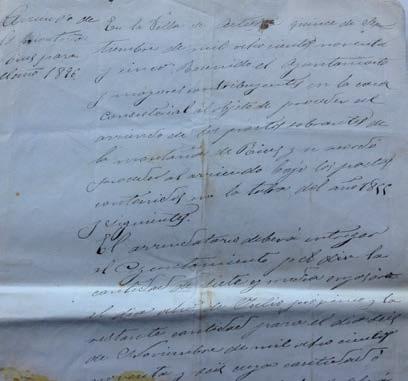 Arriendo de
la montaña
Rius para
el año 1896
En la Villa de a quince de Se
tiembre de mil ochocientos noventa
y cinco Reunido el Ayuntamiento
y mayores contribuyentes en la casa
Consistorial al objeto de proceder al
arriendo de los pastos sobrantes de
la montaña de Rius y se acordó
proceder al arriendo bajo los pactos
contenidos en la toba del año 1855
y siguientes.
El arrendatario deberá entregar
al Ayuntamiento por la
cantidad de siete y media
el dia de Julio proximo y la
restante cantidad para el dia seis
de Noviembre de mil ochocientos
noventa y seis cuya cantidad